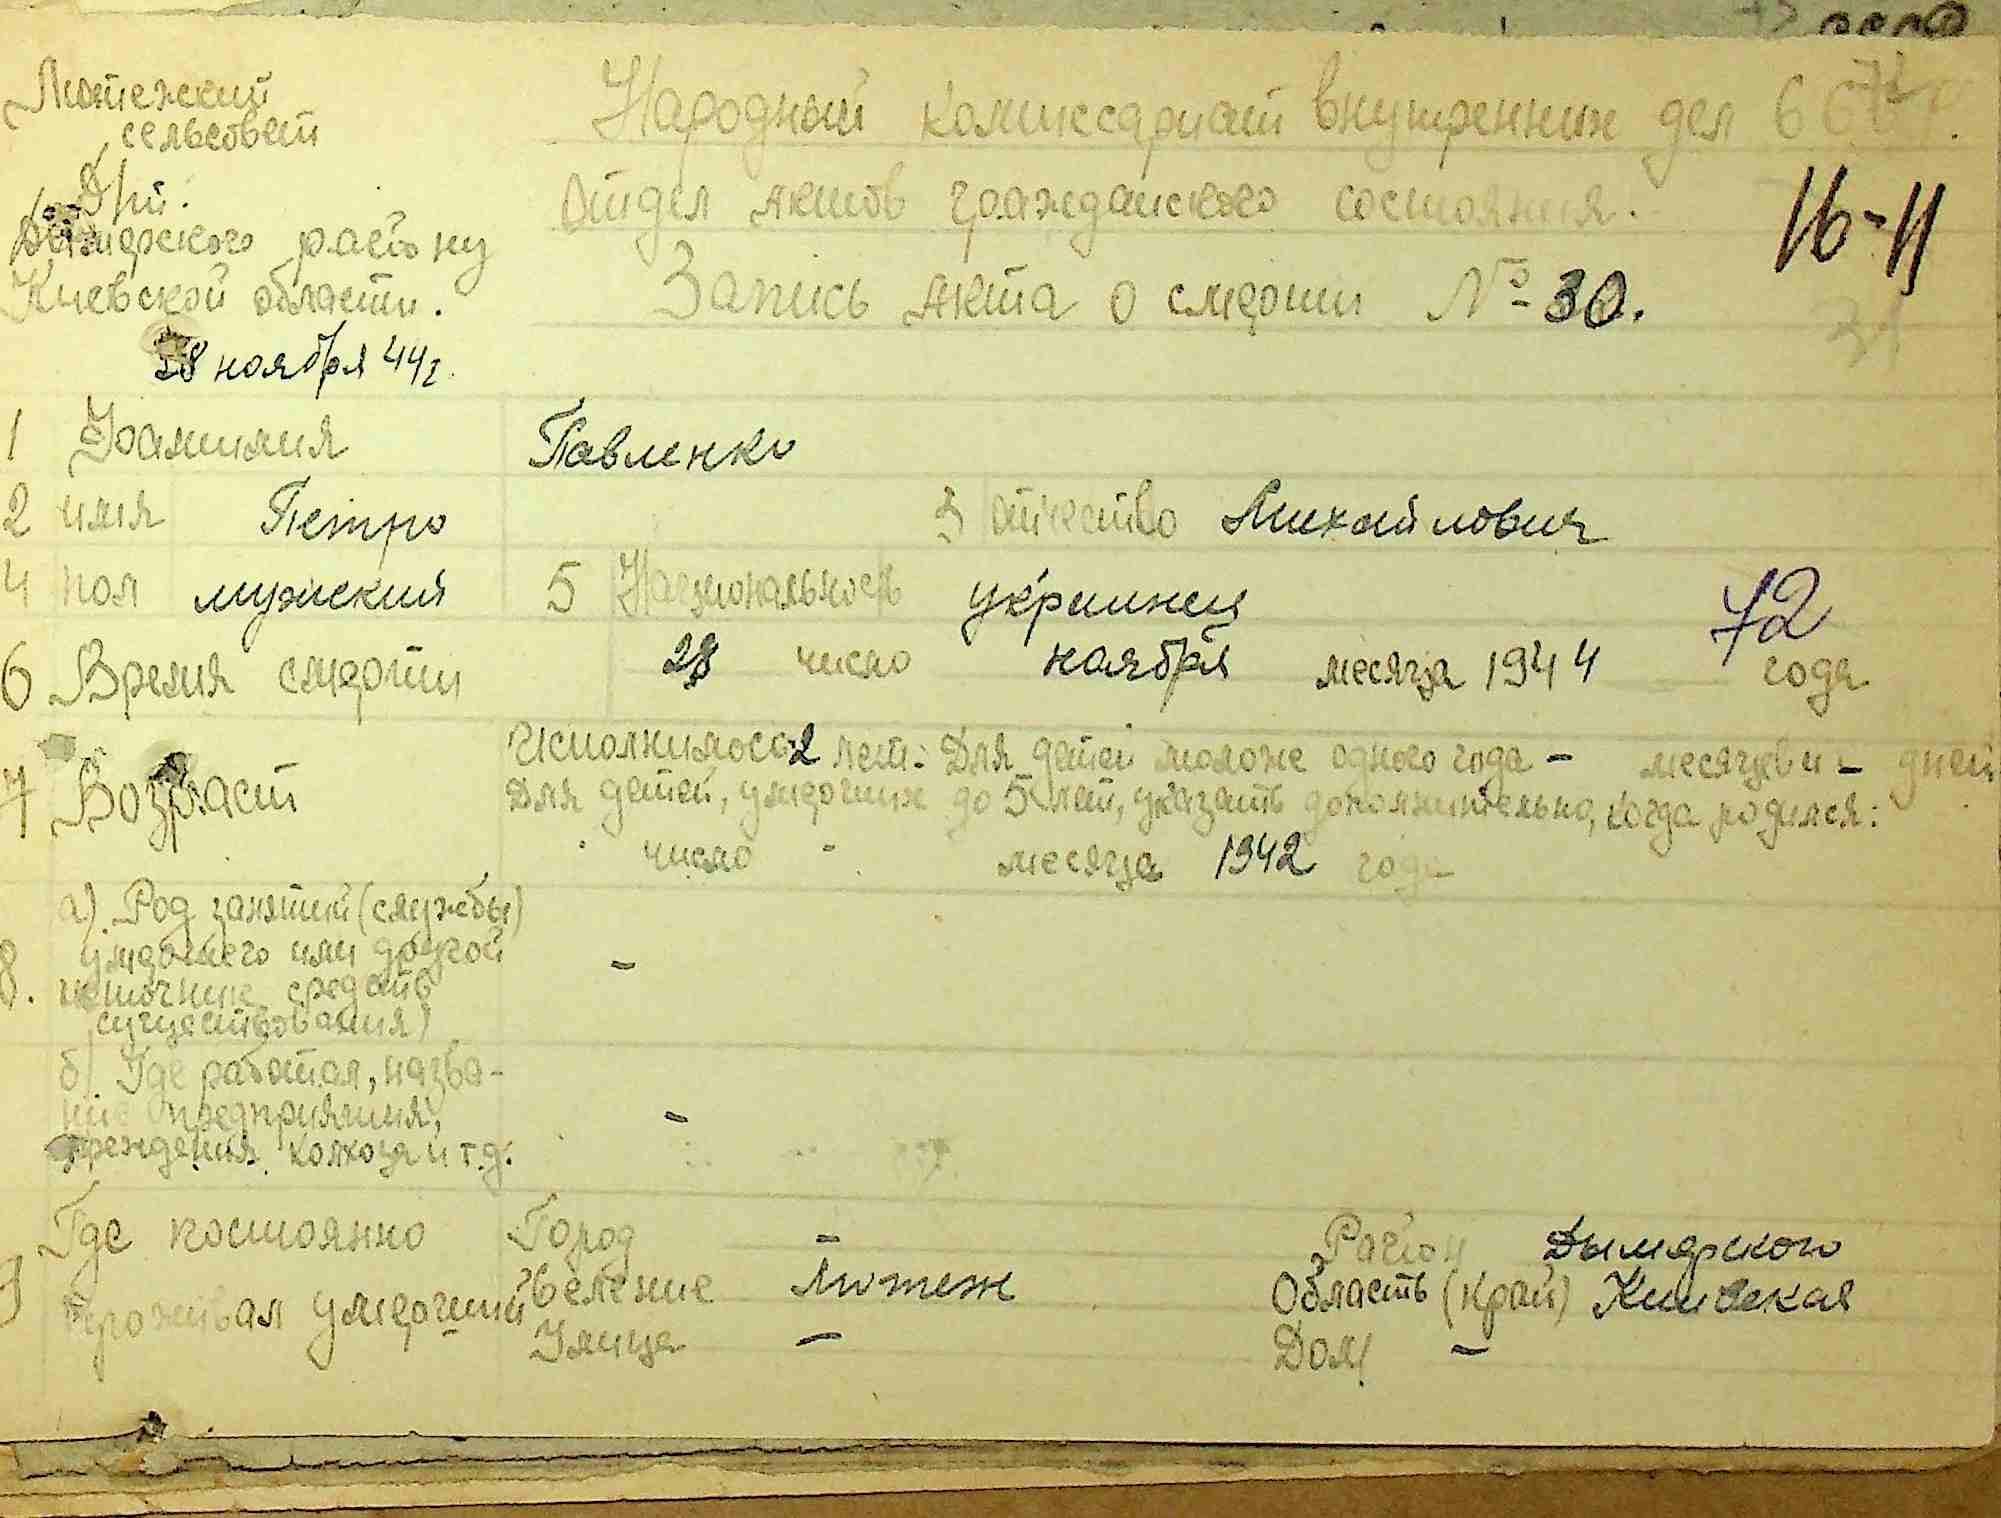 Лютежский
сельсовет
Дымерского району
Киевской области.
28 ноября 44г.
Народный комиссариат внутренних дел
Отдел актов гражданского состояния.
Запись акта о смерти № 30.
16-11
31
1 Фамилия Павленко
2 имя Петро 3 отчество Михайлович
4 пол мужский 5 Национальность украинец
72
6 Время смерти 28 число ноября месяца 1944 года
7 Возраст
Исполнилось 2 лет. Для детей моложе одного года - месяцев и - дней
Для детей, умерших до 5 лет, указать дополнительно, когда родился:
- число - месяца 1942 года
8. а) Род занятий (службы)
умершего или другой
источник средств
существования)
-
б) Где работал, назва-
ние предприятия,
учреждения, колхоза и т.д.
-
9 Где постоянно
проживал умерший
Город - Район Дымерского
Селение Лютеж Область (край) Киивская
Улица - Дом -